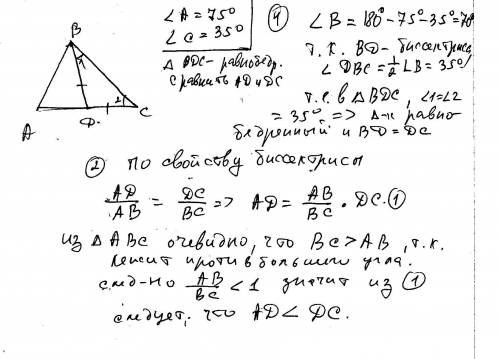 B
A
D.
C
1
2
∠A = 75°
∠C = 35°
Δ BDC - равнобедр.
Сравнить AD и DC
① ∠B = 180° - 75° - 35° = 70°
т.к. BD - биссектриса
∠DBC = 1/2 ∠B = 35°
т.е. в ΔBDC, ∠1=∠2
= 35° => Δ-к равно
бедренный и BD = DC
② По свойству биссектрисы
AD/AB = DC/BC => AD = AB/BC · DC. ①
из ΔABC очевидно, что BC > AB, т.к.
лежит против большего угла.
след-но AB/BC < 1 значит из ①
следует, что AD < DC.